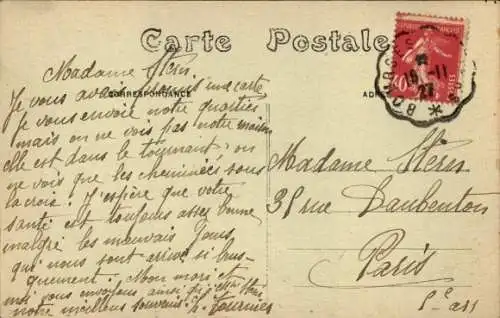 Carte Postale
CORRESPONDANCE
Madame Stern.
Je vous avais promis une carte
je vous envoie notre quartier
mais on ne vois pas notre maison
elle est dans le tournant. on
ne vois que les cheminées sous
la croix. J'espère que votre
santé est toujours assez bonne
malgré les mauvais jours,
qui nous sont arrivé si brus-
quement. Mon mari et
moi vous envoyons ainsi
notre meilleurs souvenirs.
Tournier
Madame Stern
38 rue Daubenton
Paris
5e arr
BOURGES
16 -11
27
40